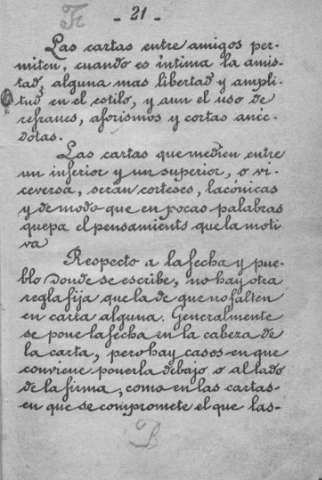 - 21 -
Las cartas entre amigos per-
miten, cuando es íntima la amis-
tad, alguna mas libertad y ampli-
tud en el estilo, y aun el uso de
refranes, aforismos y cortas anec-
dotas.
Las cartas que medien entre
un inferior y un superior, o vi-
ceversa, serán corteses, lacónicas
y de modo que en pocas palabras
quepa el pensamiento que la moti
va
Respecto a la fecha y pue-
blo donde se escribe, no hay otra
regla fija que la de que no falten
en carta alguna. Generalmente
se pone la fecha en la cabeza de
la carta, pero hay casos en que
conviene ponerla debajo o al lado
de la firma, como en las cartas-
en que se compromete el que las-